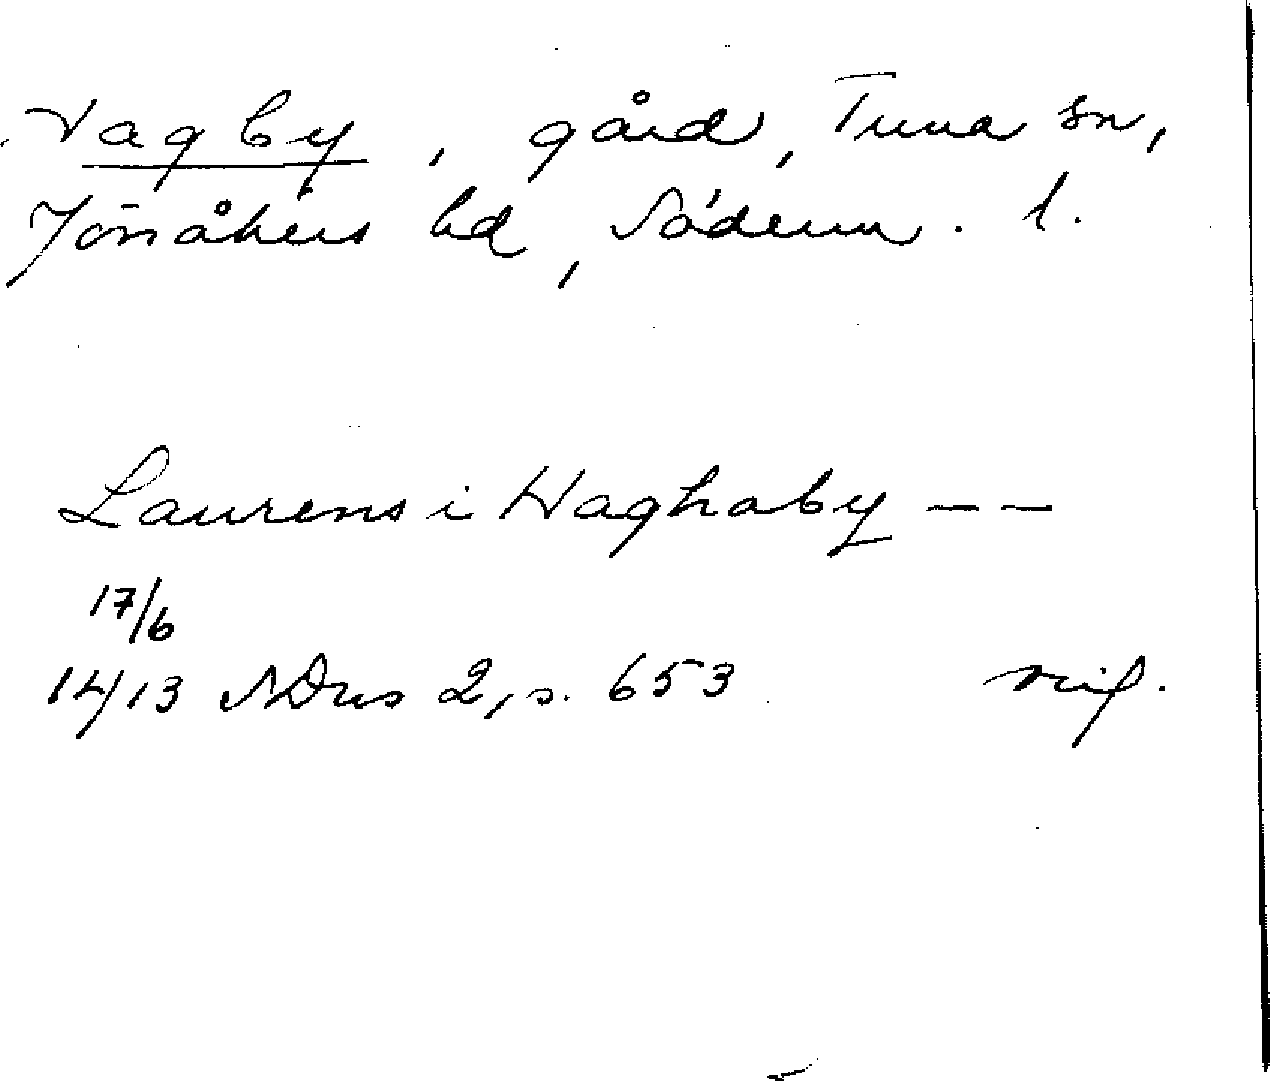 Vagby, gård, Tuna sn,
Jönåkers hd, Söderm. l.
Laurens i Waghaby --
17/6
1413 NDns 2, s. 653